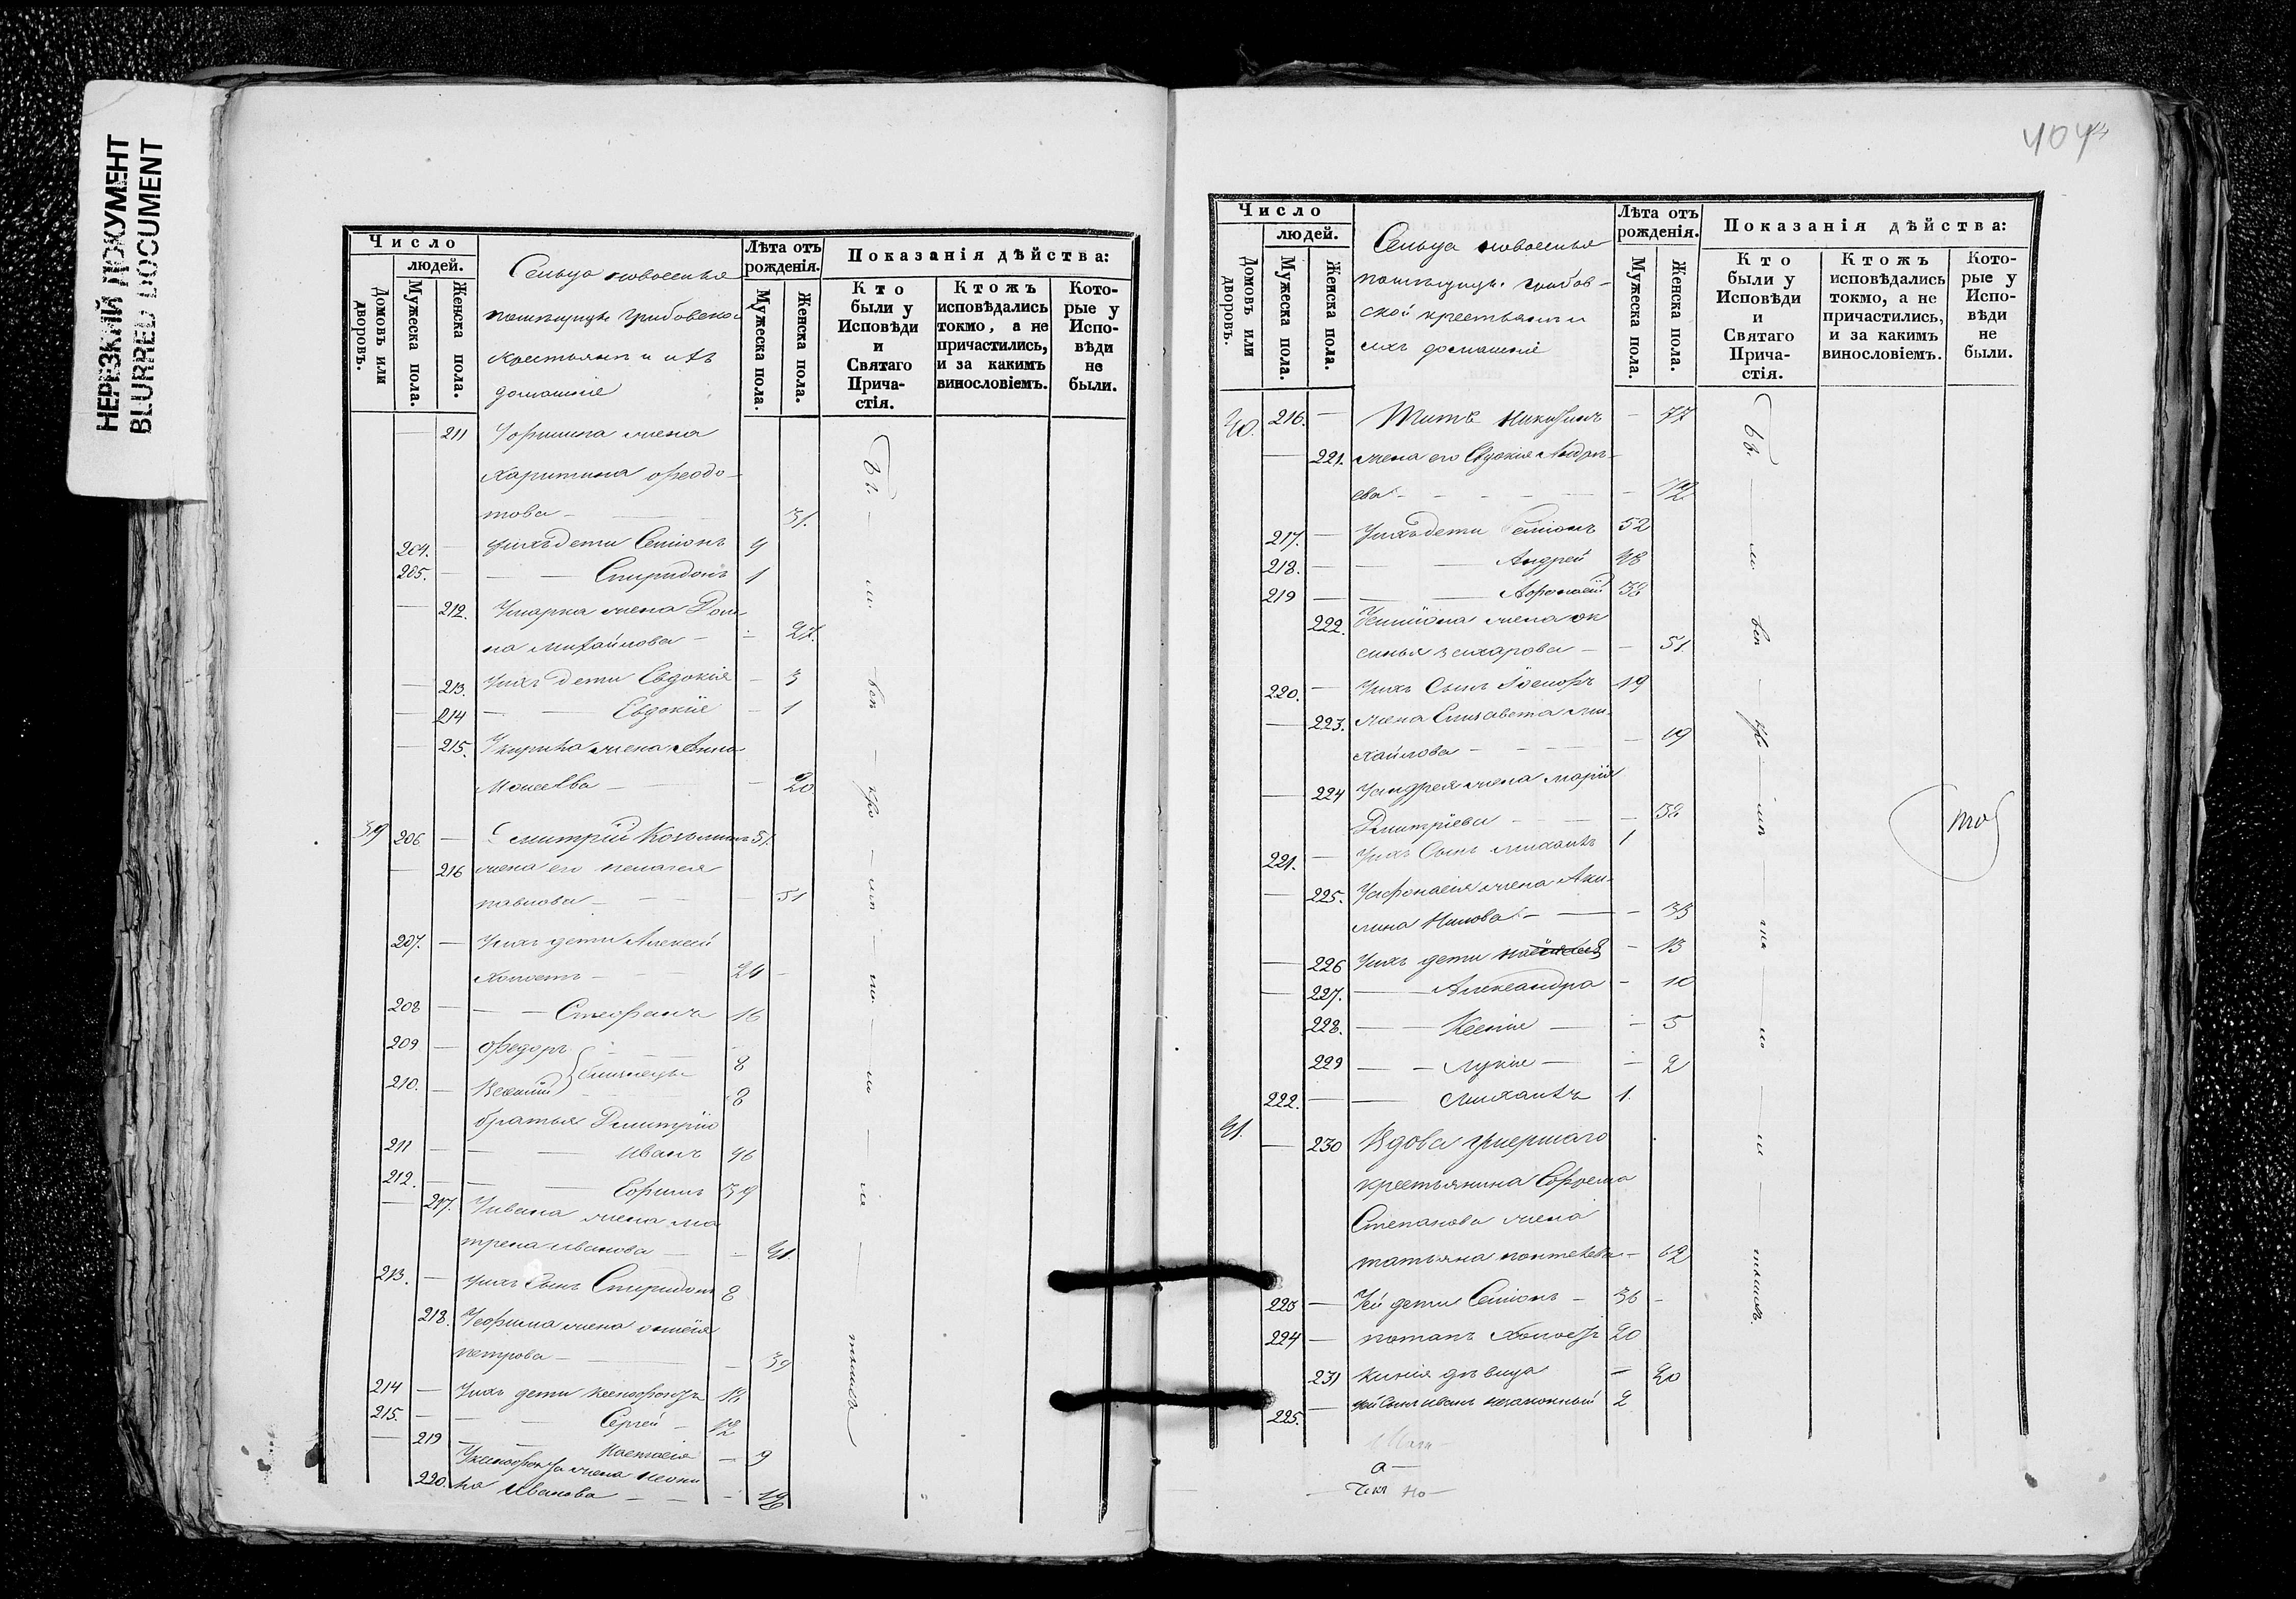 НЕРЕЗКИЙ ДОКУМЕНТ
BLURRED LOCUMENT
Число
людей.
Домовъ или дворовъ.
Мужеска пола.
Женска пола.
Сельца
помѣщицы Грибовской
крестьяне и ихъ
домашніе
Лѣта отъ рожденія.
Мужеска пола.
Женска пола.
Показанія дѣйства:
Кто были у Исповѣди и Святаго Прича-стія.
Ктожъ исповѣдались токмо, а не причастились, и за какимъ винословіемъ.
Кото-рые у Испо-вѣди не были.
211 жена
Харитина Ѳеодо-
това - 31.
204. У ихъ дети Семіонъ 4
205. Спиридонъ 1
212. У Марка жена Дом
на Михайлова - 27.
213. У ихъ дети Евдокія - 3
214 Евдокіе - 1
215. жена Анна
Моисеѣва - 20
39 206 Дмитрій Козьминъ 51.
216 жена его Пелагея
Павлова - 51
207. У ихъ дети Алексей
Холостъ - 24
208 Стефанъ 16
209 Федоръ близнецы 8
210. 8
братья Дмитрію
211 Иванъ 46
212. Ефимъ 39
217. У Ивана жена Ма
трена Иванова - 41.
213. У ихъ сынъ Спиридонъ 8
218. У Ефима жена
Петрова - 39
214 У ихъ дети Ксенофонтъ 18
215. Сергей - 12
219 Настасія - 9
220. У Ксенофонта жена
Иванова - 19
404
Число
людей.
Домовъ или дворовъ.
Мужеска пола.
Женска пола.
Сельца
помѣщицы Грибов-
ской крестьяне и
ихъ домашніе
Лѣта отъ рожденія.
Мужеска пола.
Женска пола.
Показанія дѣйства:
Кто были у Исповѣди и Святаго Прича-стія.
Ктожъ исповѣдались токмо, а не причастились, и за какимъ винословіемъ.
Кото-рые у Испо-вѣди не были.
40. 216. Титъ Никитинъ - 77
221. жена его Евдокія Андре-
ева - 72
217. У ихъ дети Семіонъ 52
218. Андрей 48
219 Афонасій 38
222. У Семіона жена Ак
синья Захарова - 51.
220. У ихъ сынъ 19
223. жена Елисавета Ми-
хайлова - 19
224 У Андрея жена Марія
Дмитріева - 32
221. У ихъ сынъ Михаилъ 1
225. У Афонасія жена Аку-
лина - 33
226 У ихъ дети - 13
227. Александра - 10
228. Ксенія - 5
229 Лукіе - 2
222. Михаилъ 1.
41. 230 Вдова умершаго
крестьянина Ефрема
Степанова жена
Татьяна Пантелева - 62
223 У ей дети Семіонъ - 36 -
224 Потапъ Холостъ 20
231 девица - 20
225. сынъ Иванъ незаконный 2